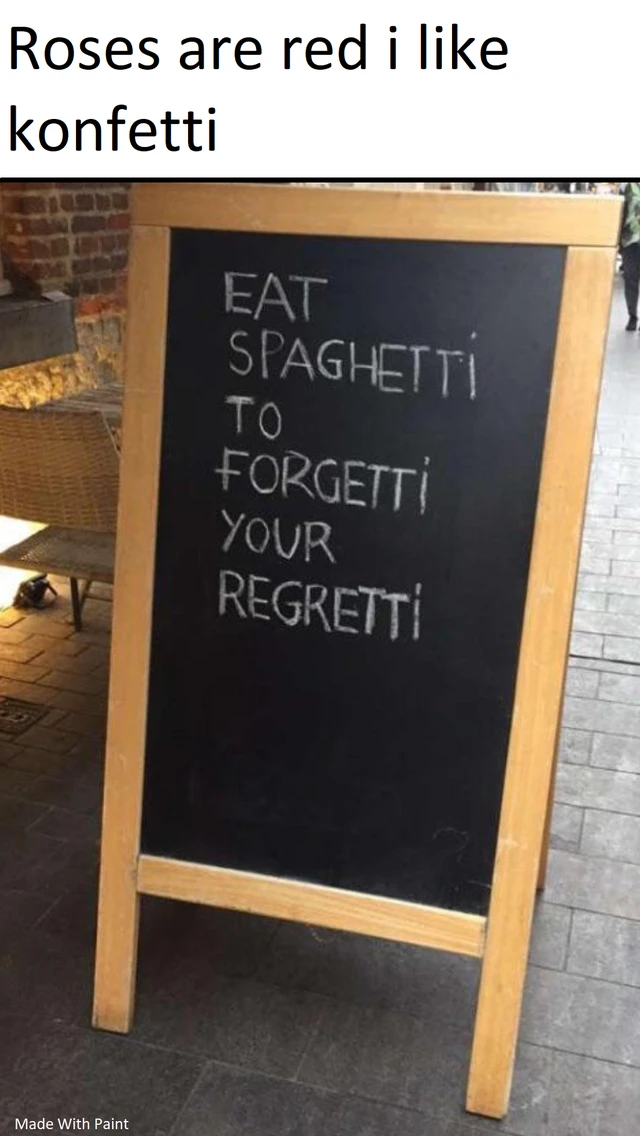 Roses are red i like
konfetti
EAT
SPAGHETTi
TO
FORGETTi
YOUR
REGRETTi
Made With Paint